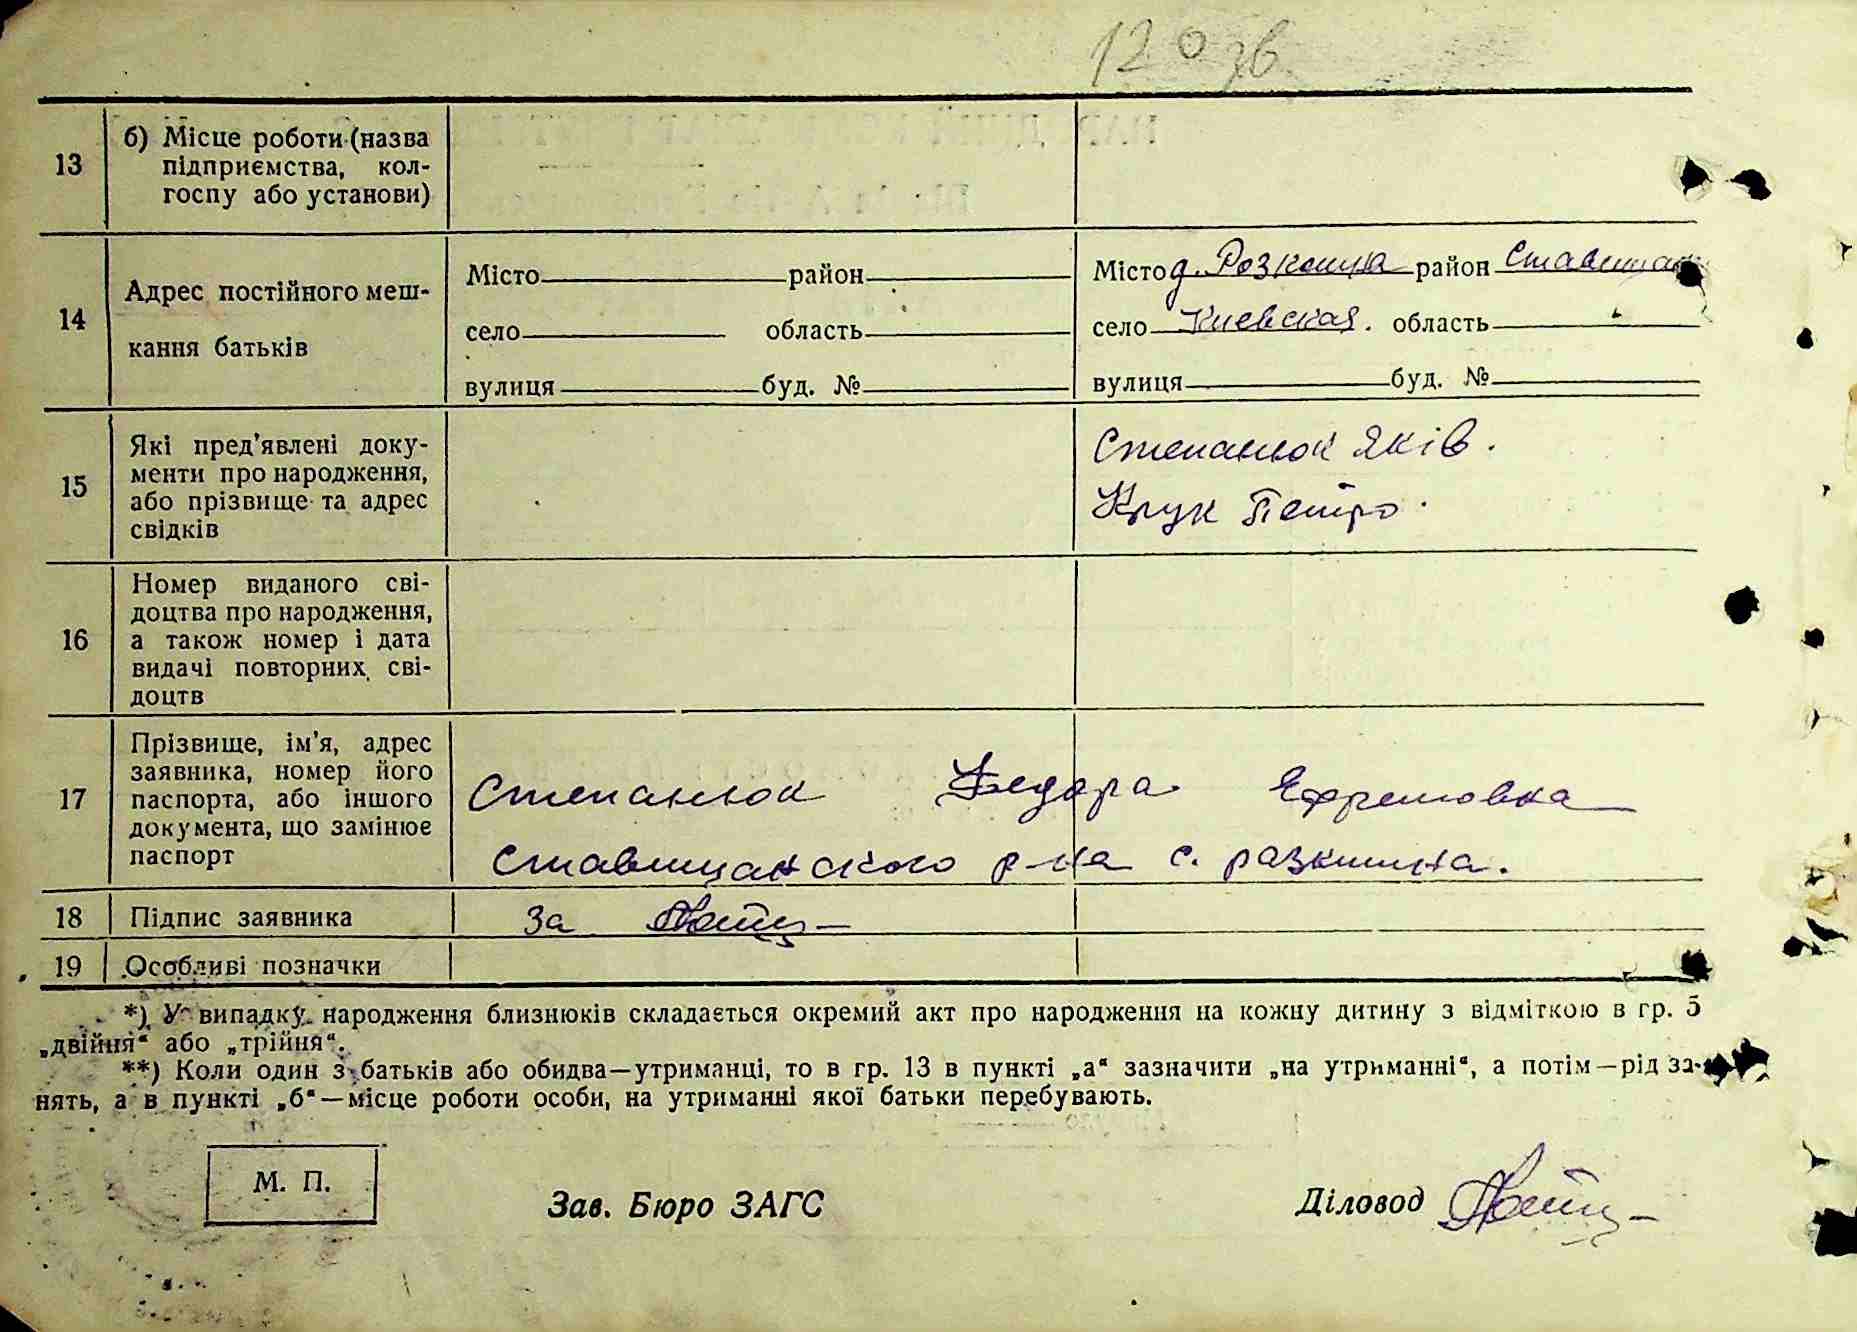 120 зв
13 б) Місце роботи (назва
підприємства, кол-
госпу або установи)
14 Адрес постійного меш-
кання батьків
Місто район
село область
вулиця буд. №
Місто д. Розкошна район Ставищан
село Киевская. область
вулиця буд. №
15 Які пред'явлені доку-
менти про народження,
або прізвище та адрес
свідків
Степанюк Яків.
Крук Петро.
16 Номер виданого сві-
доцтва про народження,
а також номер і дата
видачі повторних сві-
доцтв
17 Прізвище, ім'я, адрес
заявника, номер його
паспорта, або іншого
документа, що замінює
паспорт
Степанюк Федора Ефремовна
Ставищанского р-на с. разкишна.
18 Підпис заявника За
19 Особливі позначки
*) У випадку народження близнюків складається окремий акт про народження на кожну дитину з відміткою в гр. 5
„двійня“ або „трійня“.
**) Коли один з батьків або обидва—утриманці, то в гр. 13 в пункті „а“ зазначити „на утриманні“, а потім—рід за-
нять, а в пункті „б“—місце роботи особи, на утриманні якої батьки перебувають.
М. П.
Зав. Бюро ЗАГС
Діловод